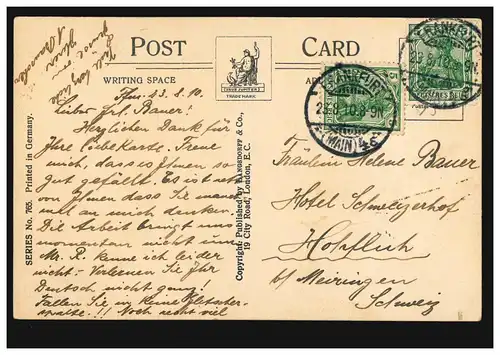 POST CARD
WRITING SPACE
THEUS JUPITER
TRADE MARK
SERIES No. 765. Printed in Germany.
Copyright: Published by & Co.,
19 City Road, London, E.C.
Ffm. 23.8.10.
Lieber Frl. Bauer!
Herzlichen Dank für
Ihre liebe Karte. Freue
mich, dass es Ihnen so
gut gefällt. Es ist nett
von Ihnen dass Sie man
mal an mich denken.
Die Arbeit bringt uns
momentan nicht um
Mr. P. kenne ich leider
nicht. Verlernen Sie Ihr
Deutsch nicht ganz!
Fallen Sie in keine Gletscher-
spalte!!! Noch recht viel
FRANKFURT
23.8.10.8-9N
(MAIN)
5
FRANKFURT
23.8.10.8-9N
Fräulein Helene Bauer
Hotel Schweizerhof
Hohfluh
b/ Meiringen
Schweiz